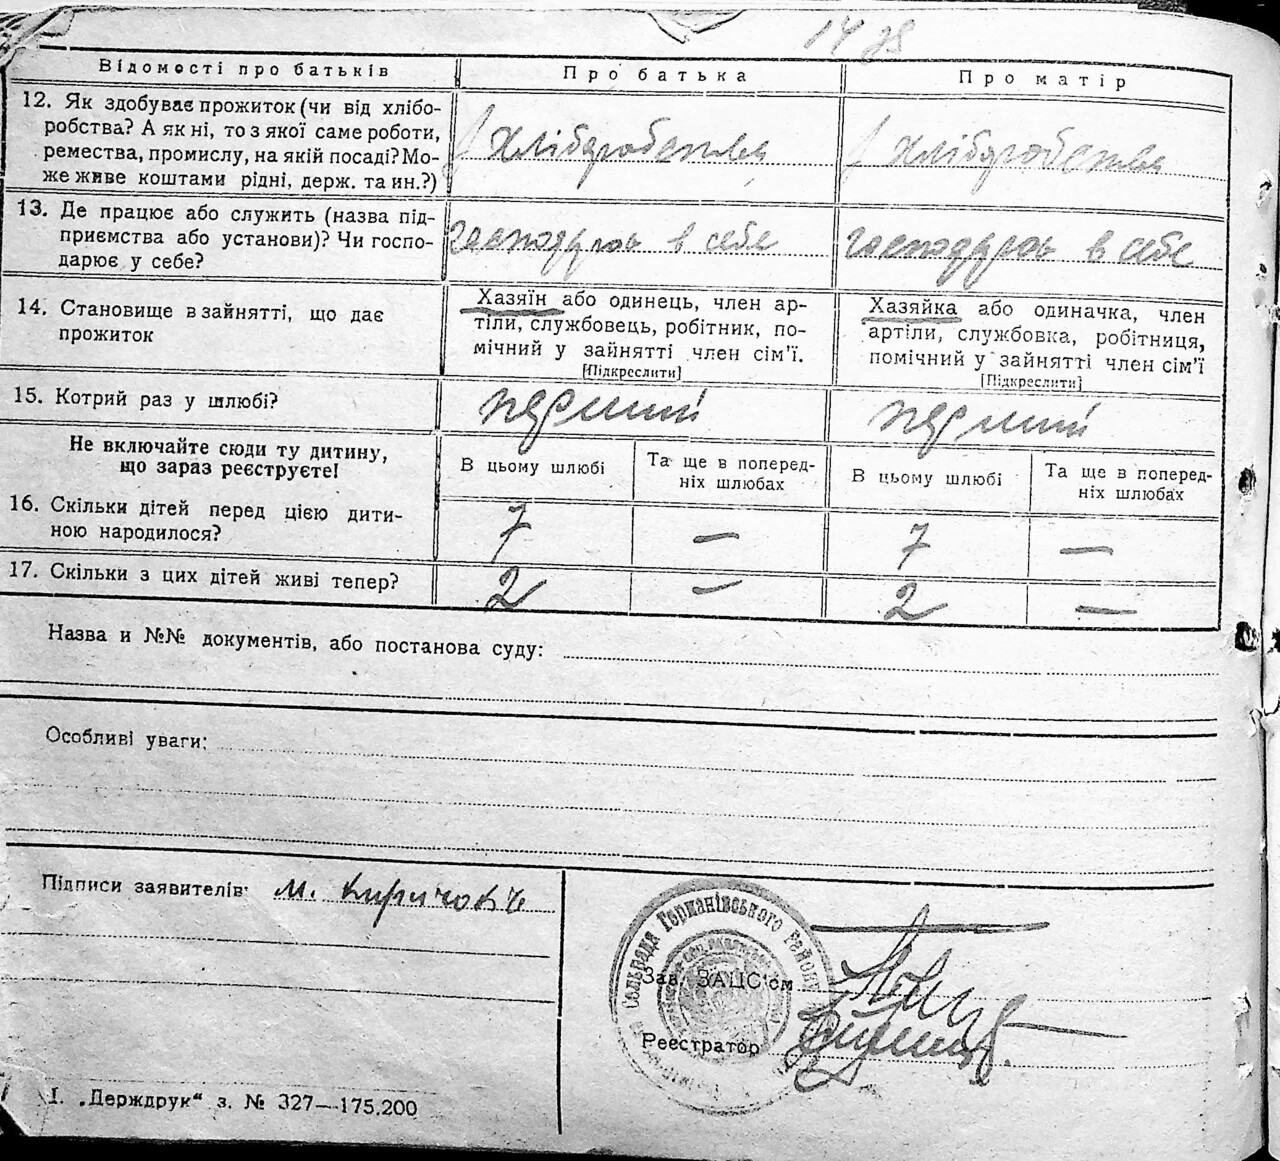 Відомості про батьків Про батька Про матір
12. Як здобуває прожиток (чи від хлібо-
робства? А як ні, то з якої саме роботи,
ремества, промислу, на якій посаді? Мо-
же живе коштами рідні, держ. та ин.?)
хліборобства хліборобства
13. Де працює або служить (назва під-
приємства або установи)? Чи госпо-
дарює у себе?
в себе в себе
14. Становище в зайнятті, що дає
прожиток
Хазяїн або одинець, член ар-
тілі, службовець, робітник, по-
мічний у зайнятті член сім'ї.
[Підкреслити]
Хазяйка або одиначка, член
артілі, службовка, робітниця,
помічний у зайнятті член сім'ї
[Підкреслити]
15. Котрий раз у шлюбі? перший перший
Не включайте сюди ту дитину,
що зараз реєструєте!
В цьому шлюбі Та ще в поперед-
ніх шлюбах
В цьому шлюбі Та ще в поперед-
ніх шлюбах
16. Скільки дітей перед цією дити-
ною народилося?
7 — 7 —
17. Скільки з цих дітей живі тепер? 2 — 2 —
Назва и №№ документів, або постанова суду:
Особливі уваги:
Підписи заявителів: М.
Сельрада Германівського Району
Зав. ЗАЦС'ом
Реєстратор
І. „Держдрук“ з. № 327—175.200